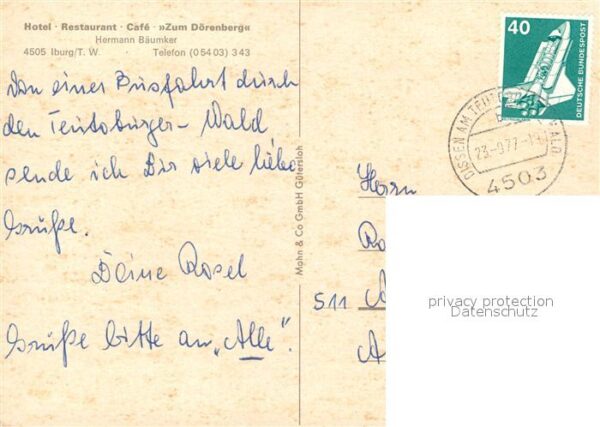 Hotel · Restaurant · Café · »Zum Dörenberg«
Hermann Bäumker
4505 Iburg/T. W. · Telefon (0 54 03) 3 43
Von einer Busfahrt durch
den Teutoburger-Wald
sende ich Dir viele liebe
Grüße.
Deine Rosel
Grüße bitte an „Alle".
Mohn & Co GmbH Gütersloh
40
DEUTSCHE BUNDESPOST
DISSEN AM TEUTOBURGER WALD
23.-9.77-19
4503
Herrn
511
privacy protection
Datenschutz